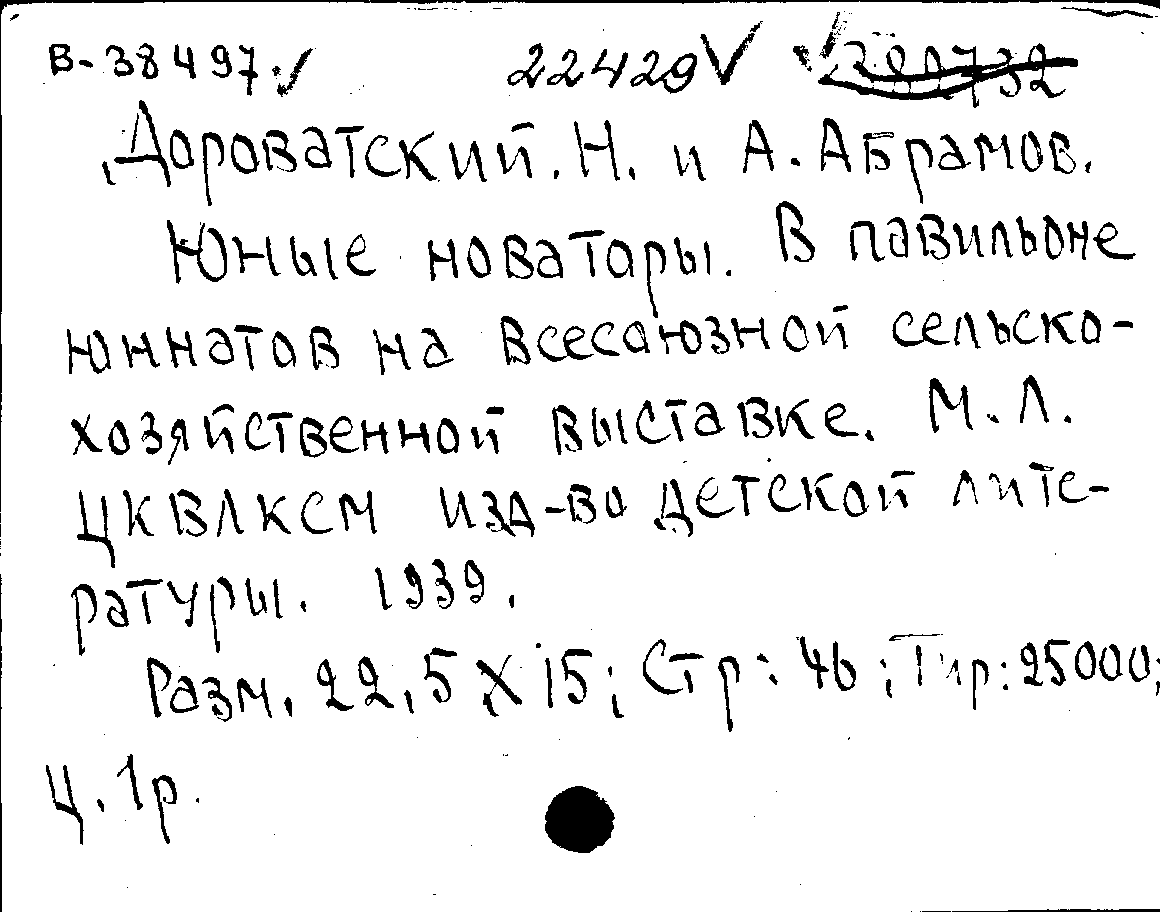 В-38497 ✓ 22429 ✓ ✓
Дороватский. Н. и А. Абрамов.
Юные новаторы. В павильоне
юннатов на Всесоюзной сельско-
хозяйственной выставке. М. Л.
ЦКВЛКСМ изд-во детской лите-
ратуры. 1939.
Разм. 22,5 X 15; Стр: 46; Тир: 25000;
Ц. 1р.